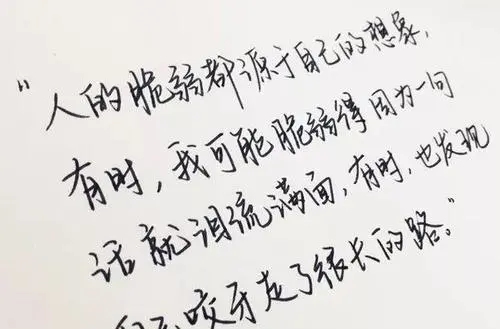 “人的脆弱都源于自己的想象，
有时，我可能脆弱得因为一句
话就泪流满面，有时，也发现
咬牙走了很长的路。”